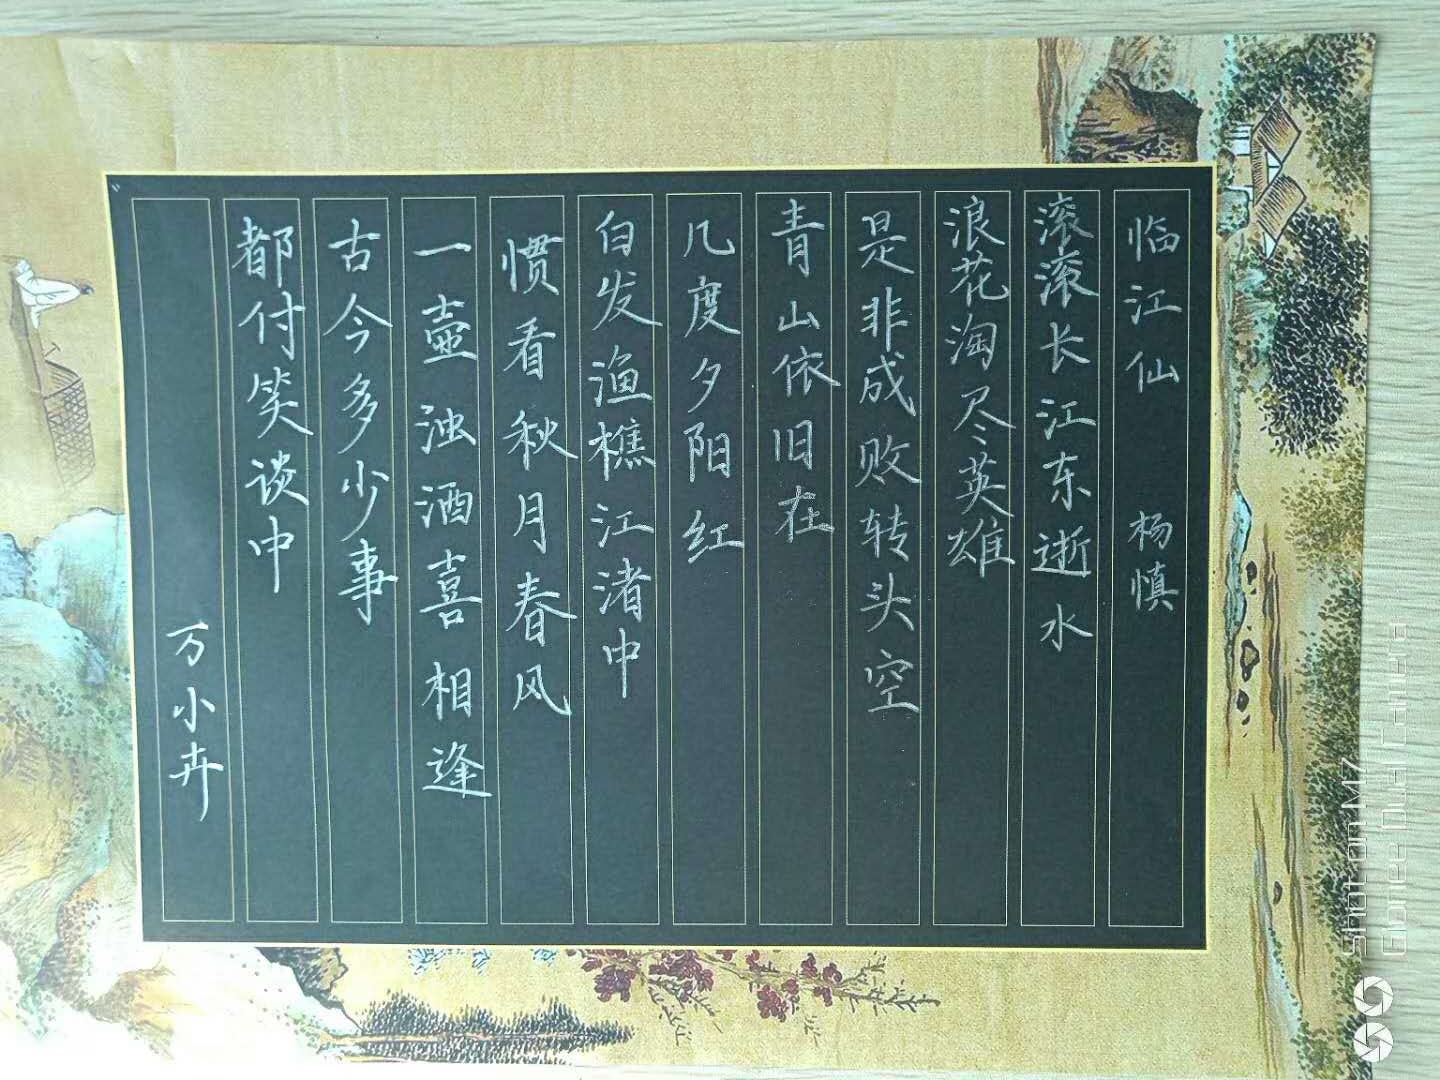 临江仙 杨慎
滚滚长江东逝水
浪花淘尽英雄
是非成败转头空
青山依旧在
几度夕阳红
白发渔樵江渚中
惯看秋月春风
一壶浊酒喜相逢
古今多少事
都付笑谈中
万小卉
Shot on M7
Gionee Dual Camera